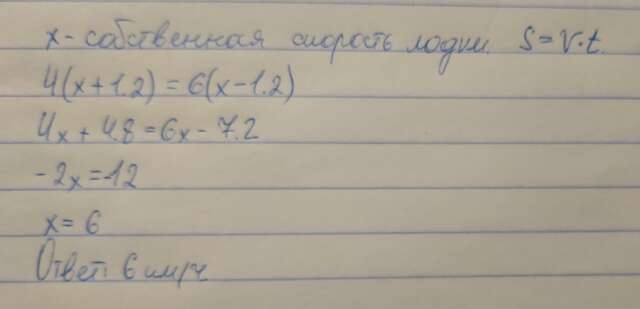 x - собственная скорость лодки. S = V·t.
4(x+1.2) = 6(x-1.2)
4x + 4.8 = 6x - 7.2
-2x = -12
x = 6
Ответ: 6 км/ч